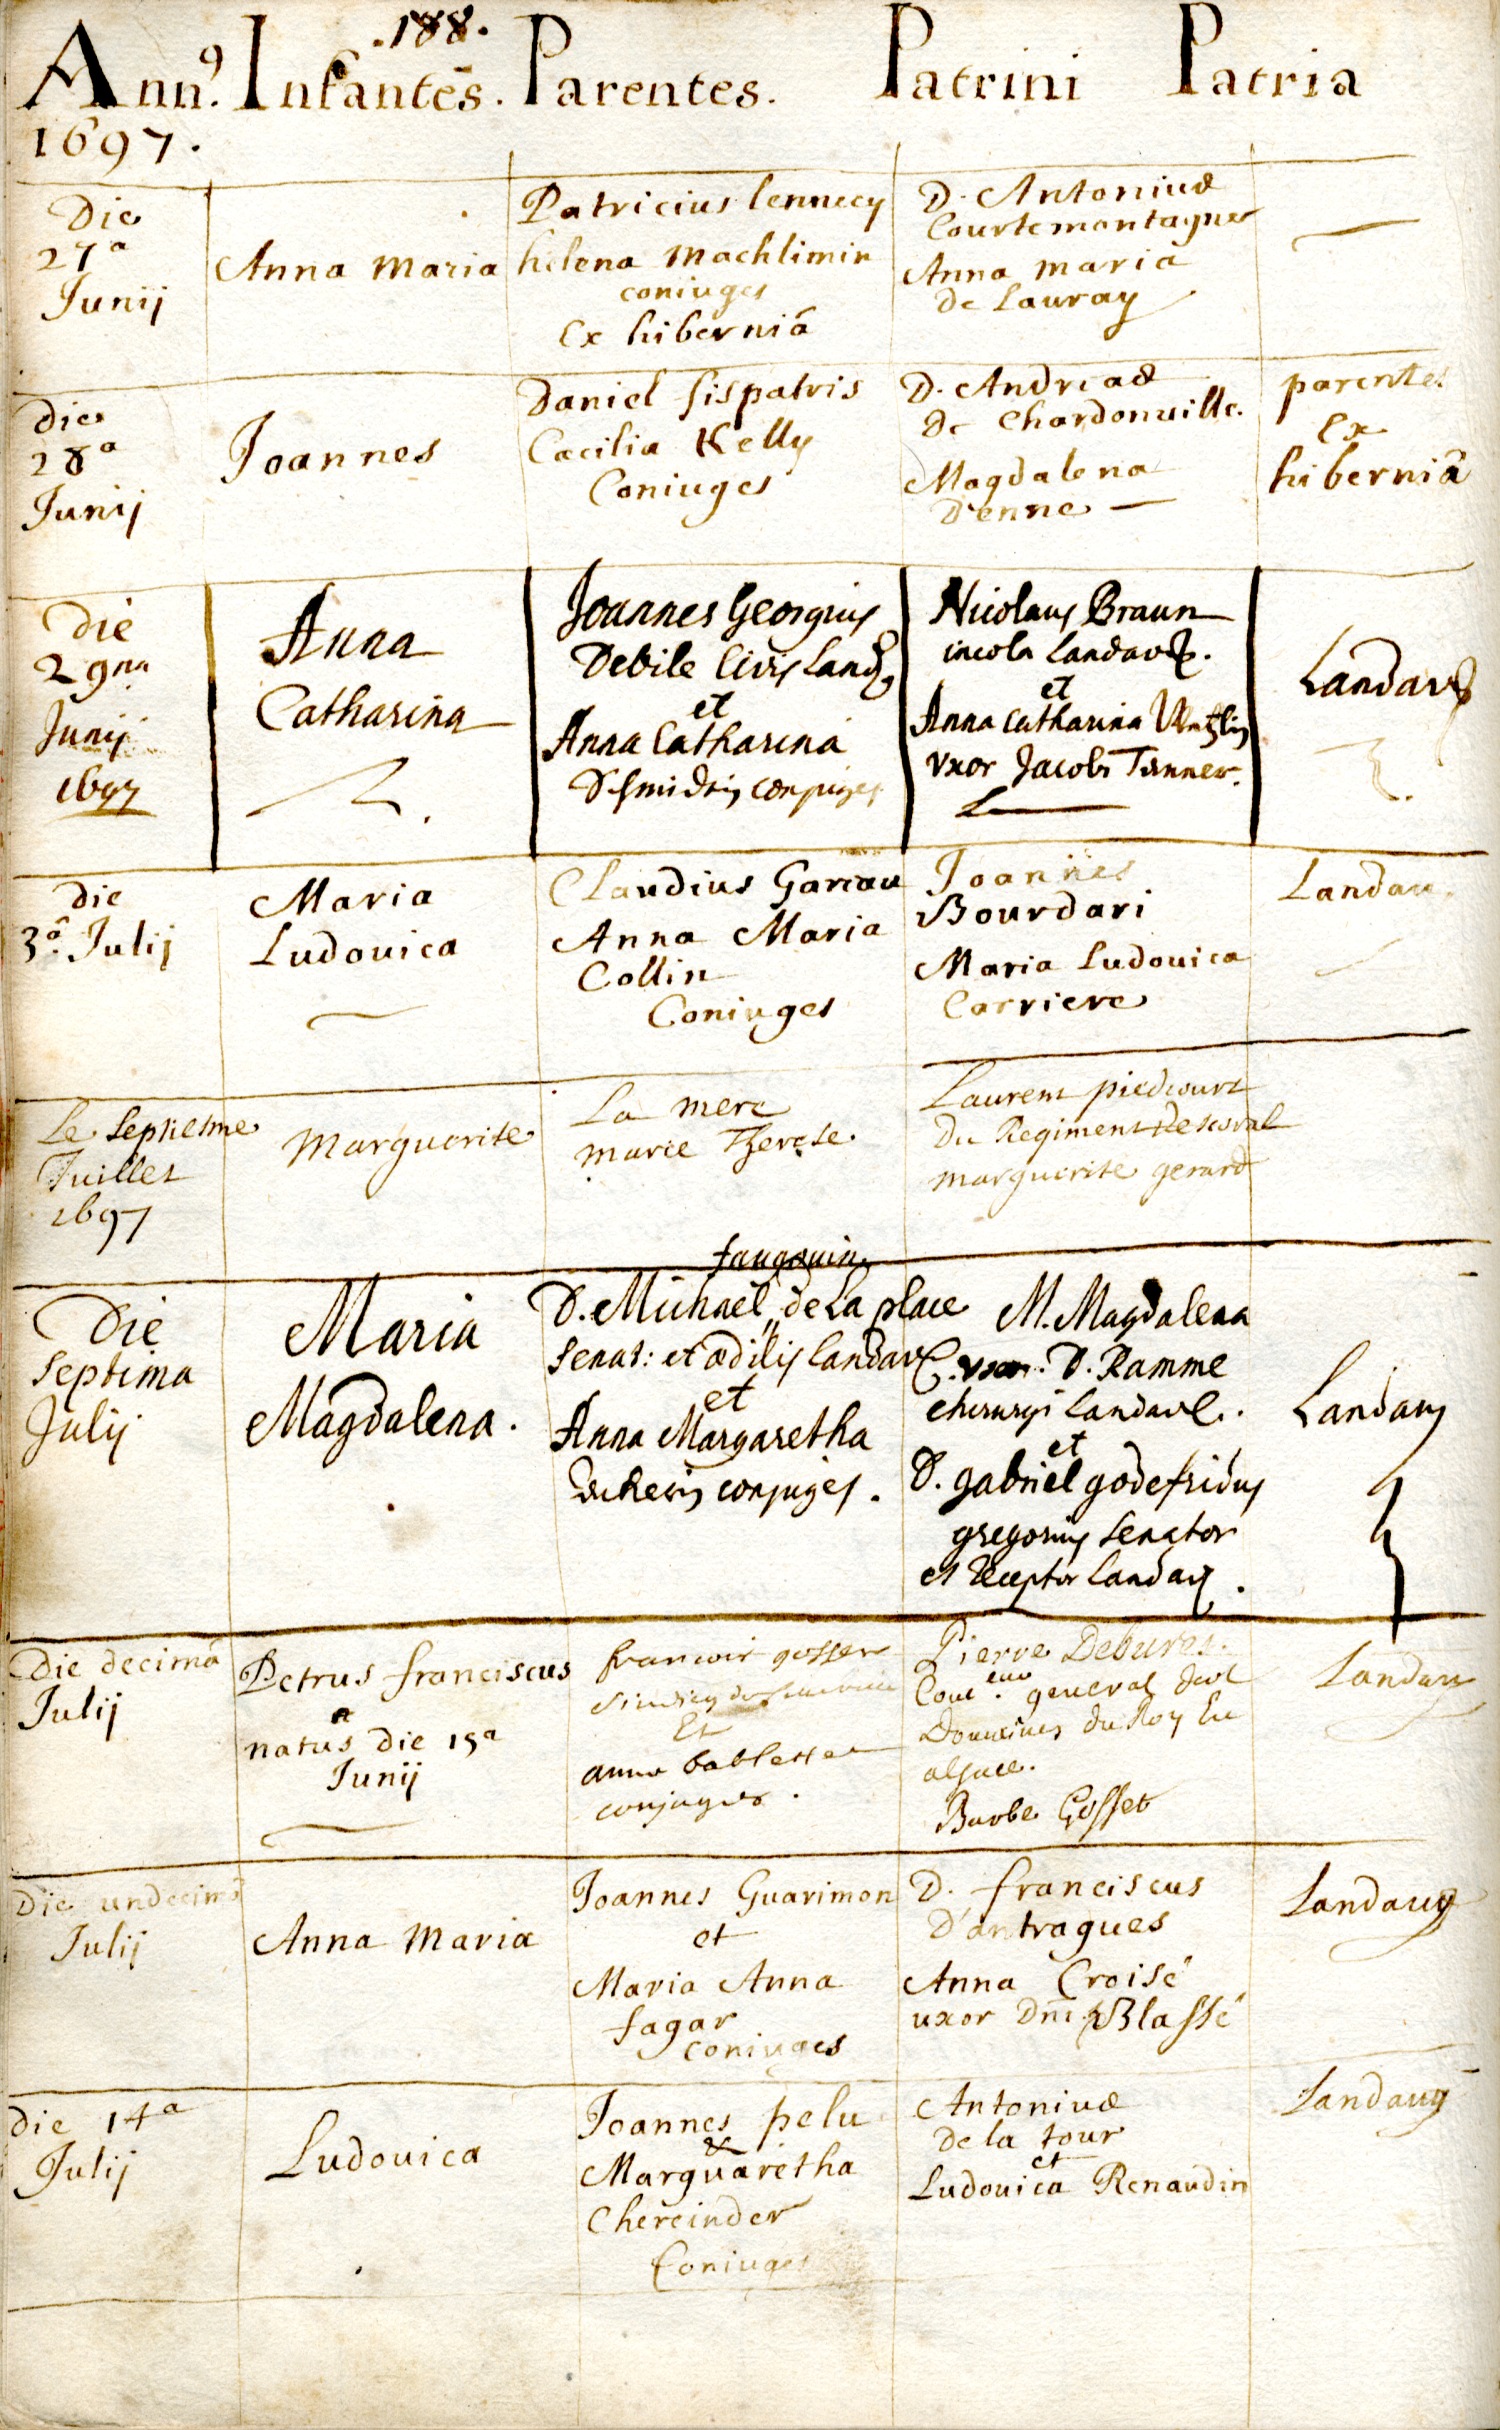 .188.
Ann9. Infantes. Parentes. Patrini Patria
1697.
Die
27a
Junij
Anna Maria
Patricius lennecy
helena Machlimin
coniuges
Ex hiberniâ
D. Antonius
Courtemontagne
Anna maria
De Lauray
Die
28a
Junij
Joannes
Daniel fispatris
Cæcilia Kelly
Coniuges
D. Andreas
De Chardonuille.
Magdalena
D'enne
parentes
Ex
hiberniâ
Die
29na
Junij
1697
Anna
Catharina
Joannes Georgius
Debile Civis Land
et
Anna Catharina
Schmidtin conjuges
Nicolaus Braun
incola Landav.
et
Anna Catharina
vxor Jacobi Tanner.
Landav
Die
3â. Julij
Maria
Ludouica
Claudius Garcau
Anna Maria
Collin
Coniuges
Joannes
Bourdari
Maria Ludouica
Carriere
Landau.
Le Septiesme
Juillet
1697
Marguerite
La mere
marie Therese.
Laurent piedcourt
Du Regiment
marguerite gerard
Die
Septima
Julij
Maria
Magdalena.
D. Michaël de La place
Senat: et ædilis Landav
et
Anna Margaretha
conjuges.
M. Magdalena
vxor. D. Ramme
chirurgi Landav.
et
D. Gabriel godefridus
gregorius Senator
et Receptor Landav.
Landau
Die decimâ
Julij
Petrus franciscus
natus die 15a
Junij
francois gosser
Et
anna
conjuges.
Pierre Debures.
general des
Domaines du Roy En
alsace.
Barbe Gosset
Landau
Die undecimâ
Julij
Anna Maria
Joannes Guarimon
et
Maria Anna
fagar
coniuges
D. franciscus
D'antragues
Anna Croisé
uxor Dni Blassé
Landaug
Die 14a
Julij
Ludouica
Joannes pelu
&
Marguaretha
Chereinder
Coniuges
Antonius
De la tour
et
Ludouica Renaudin
Landaug